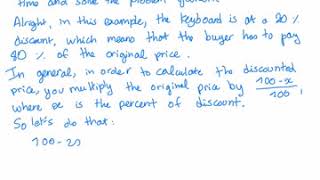 time and solve the problem
Alright, in this example, the keyboard is at a 20 %
discount, which means that the buyer has to pay
80 % of the original price.
In general, in order to calculate the discounted
price, you multiply the original price by (100-x)/100,
where x is the percent of discount.
So let's do that:
100-20